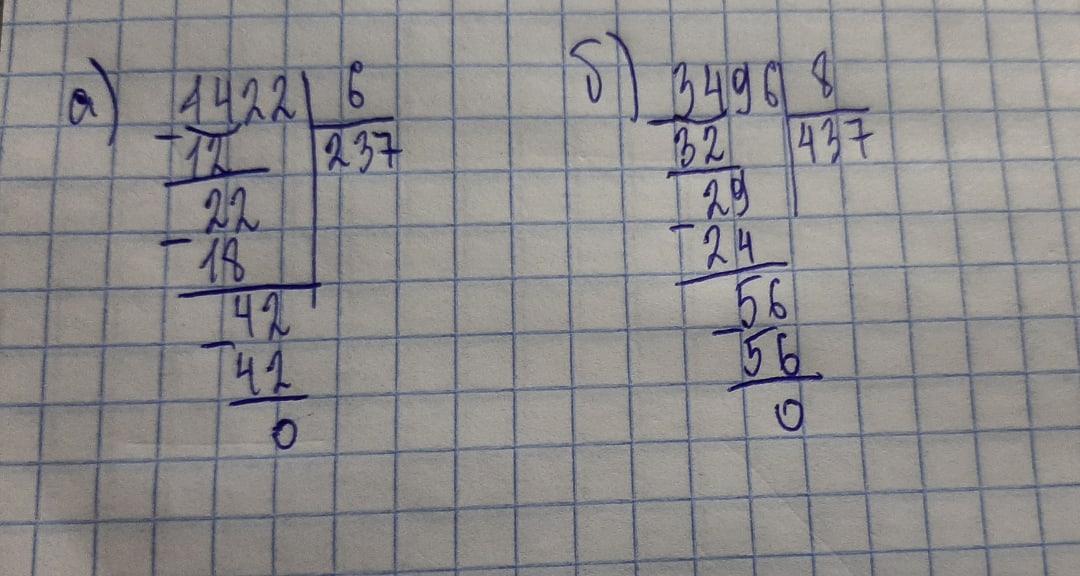 а) 1422 6
- 12 237
22
- 18
42
- 42
0
б) 3496 8
- 32 437
29
- 24
56
- 56
0